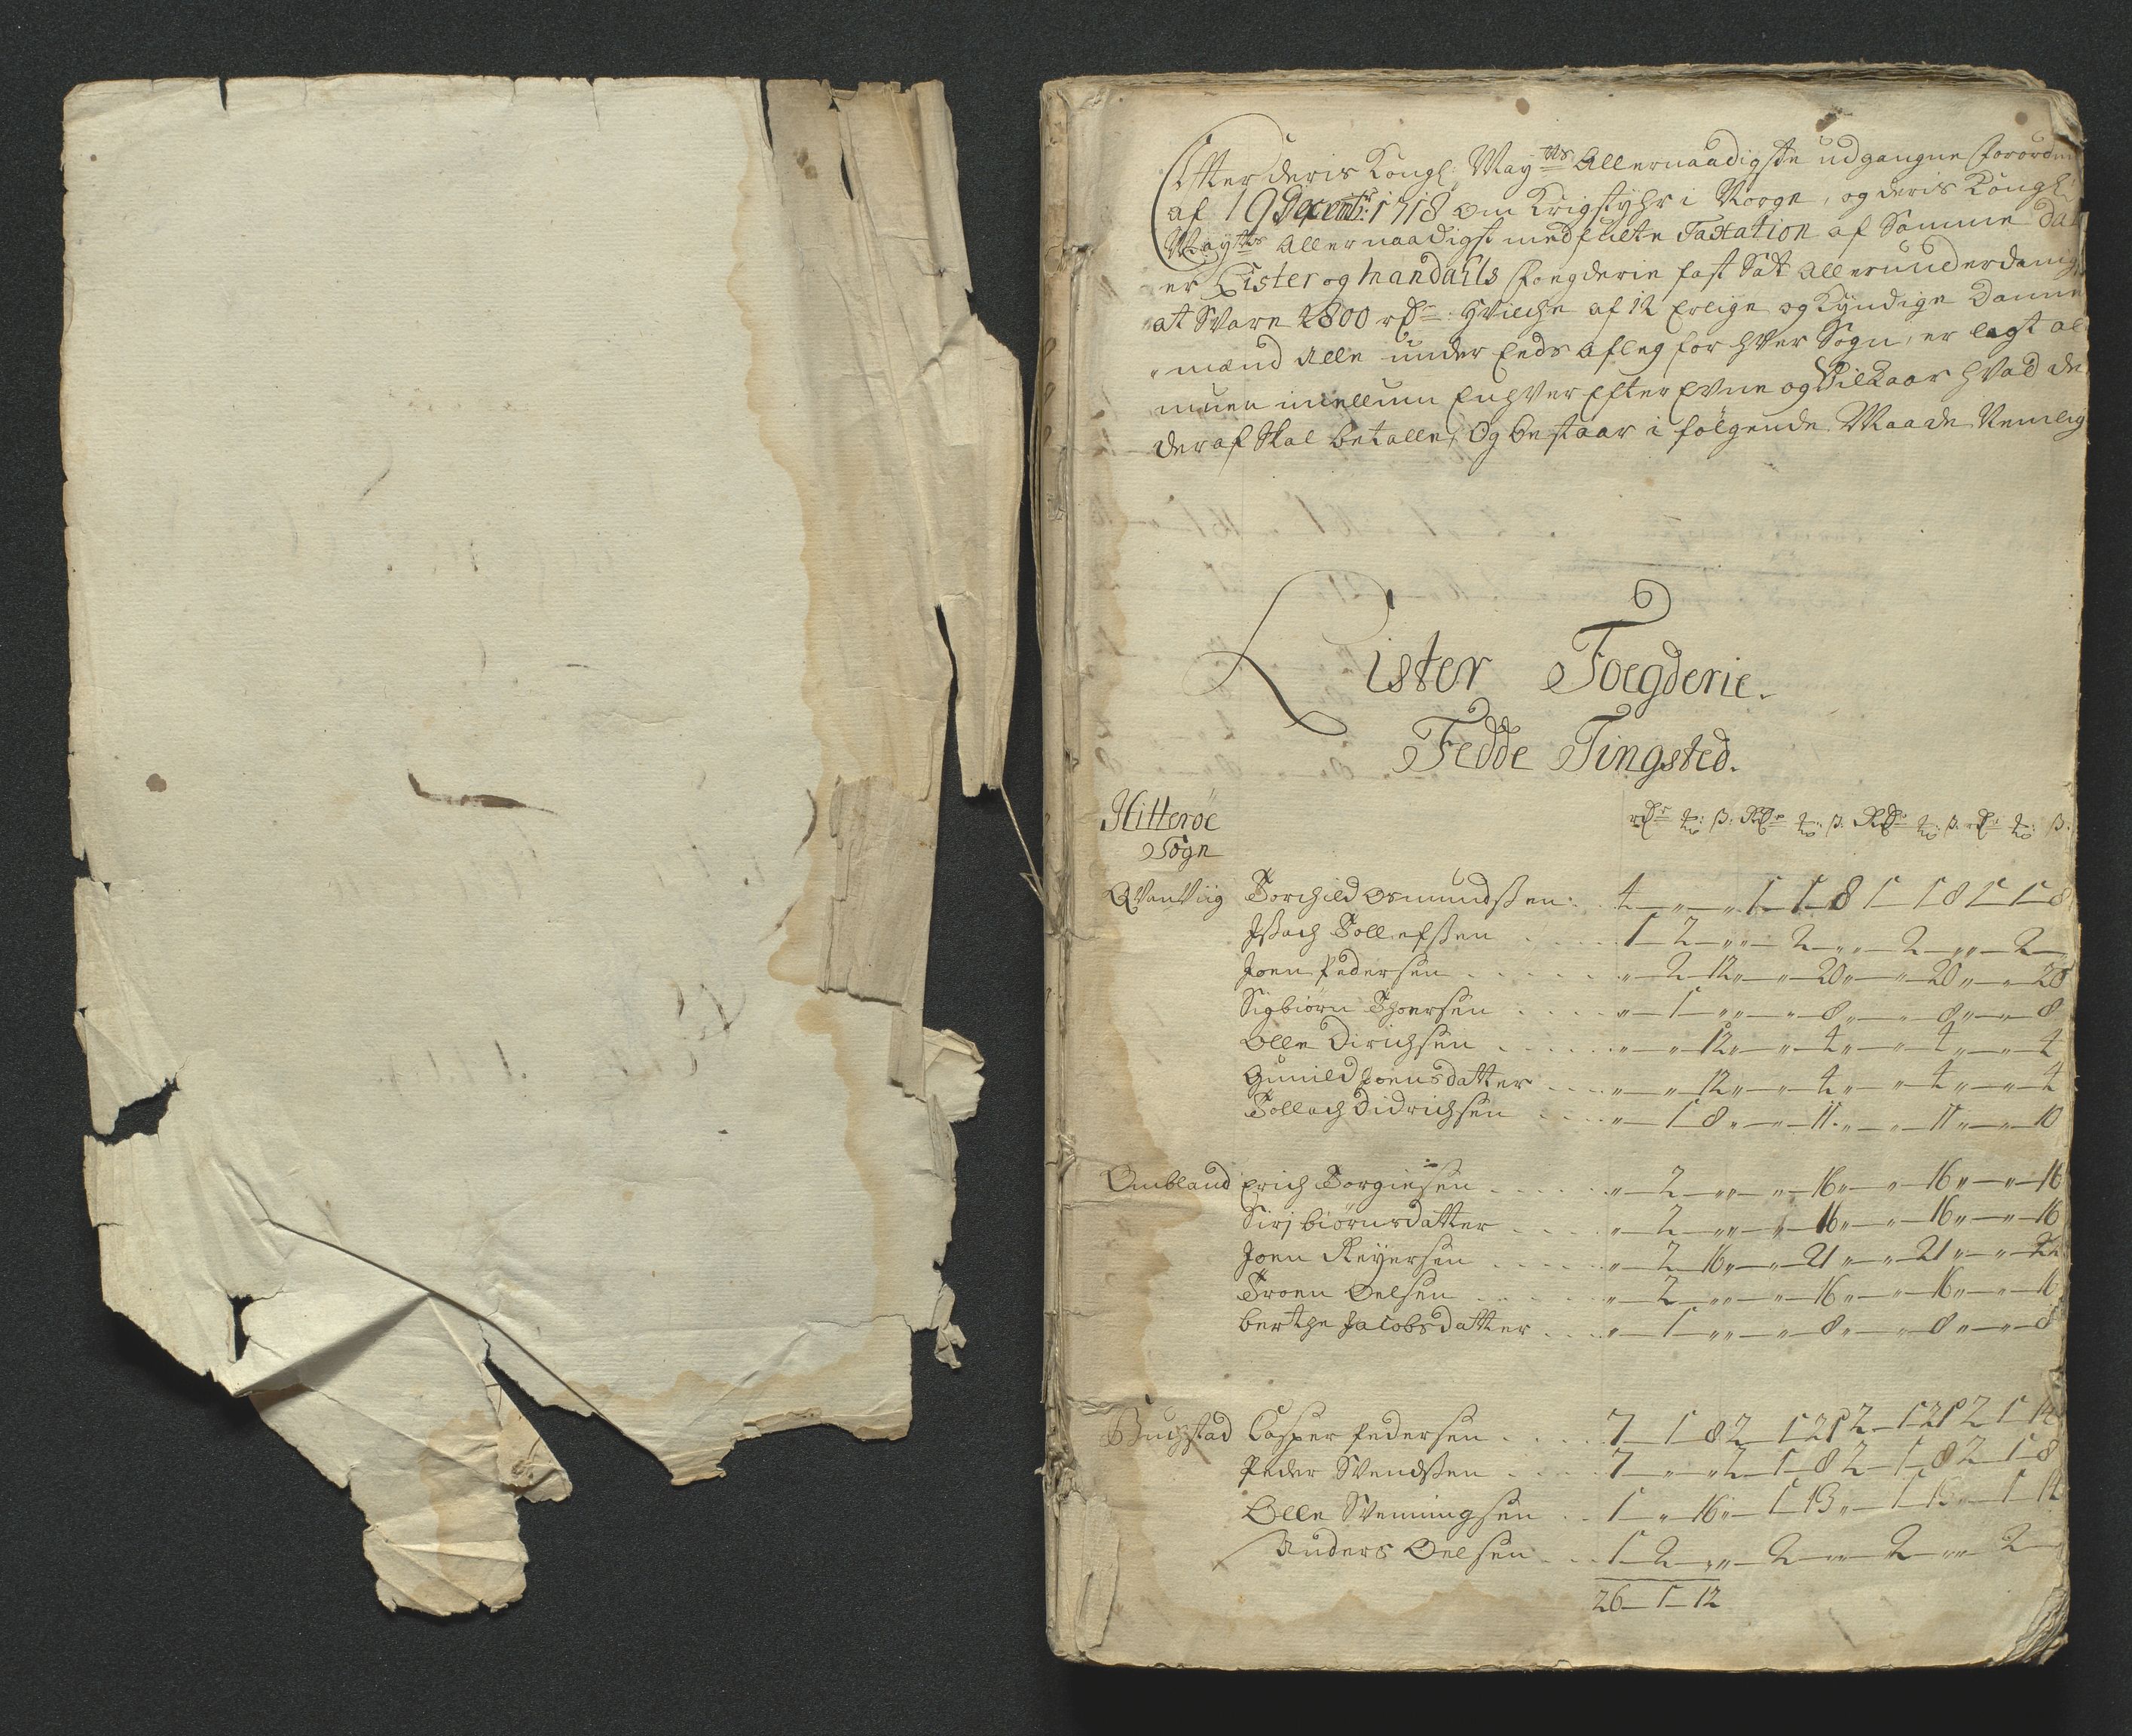 Efter deris Kongl: May:tts Allernaadigste udgangne Forordn
af 19 Decembr: 1718 om Krigstyhr i Norge, og deris Kongl:
May:tts Allernaadigst medfulte Taxation af Samme Dat
er Lister og Mandahls Foegderie fast Sat Allerunderdanig
at Svare 2800 rdr: Hvilche af 12 Erlige og Kyndige Danne
mænd Alle under Eeds Afleg for Hver Sogn, er lagt al
muen imellum Enhver Efter Evne og Vilkaar hvad de
deraf Skal betalle, Og bestaar i følgende Maade Nemlig
Lister Foegderie.
Fedde Tingsted.
Hitterøe
Sogn
rdr: ß: Rdr: ß: Rdr: ß: rdr: ß:
Qvanviig Torchild Osmundßen 4 " " 1 1 8 1 1 8 1 1 8
Jßach Tollefßen 1 2 " " 2 " " 2 " " 2 "
Joen Pedersen " 2 12 " " 20 " " 20 " " 20
Sigbiørn Thorsen " 1 " " " 8 " " 8 " " 8
Olle Dirichsen " " 12 " " 4 " " 4 " " 4
Gunild Joensdatter " " 12 " " 4 " " 4 " " 4
Tollach Didrichsen " 1 8 " " 11 " " 11 " " 10
Ombland Erich Torgiesen " 2 " " " 16 " " 16 " " 16
Sirj biørnsdatter " 2 " " " 16 " " 16 " " 16
Joen Reyersen " 2 16 " " 21 " " 21 " " 22
Troen Oelsen " 2 " " " 16 " " 16 " " 16
Berthe Jacobsdatter " 1 " " " 8 " " 8 " " 8
Casper Pedersen 7 1 8 2 1 21 2 1 21 2 1 14
Peder Svendßen 7 " " 2 1 8 2 1 8 2 1 8
Olle Svenningsen 1 " 16 " 1 13 " 1 13 " 1 14
Anders Oelsen 1 2 " " 2 " " 2 " " 2 "
26 1 12